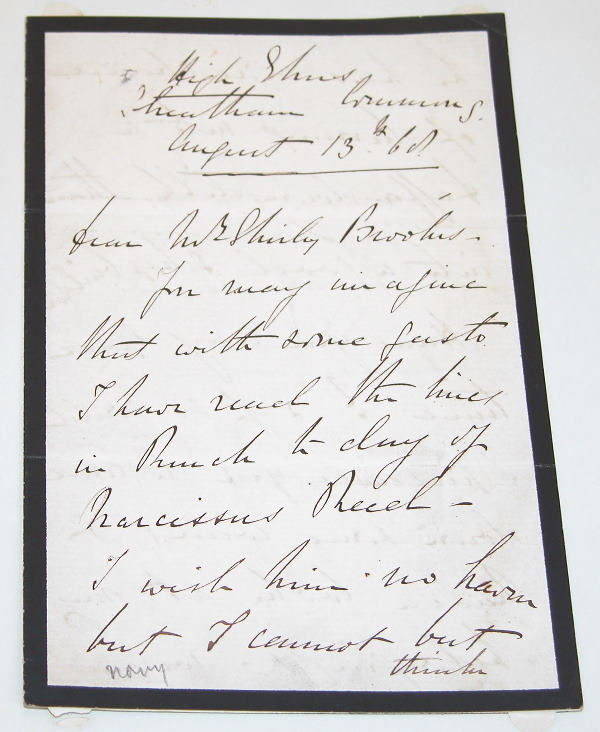 High Elms
Streatham Common S.
August 13th 68
Dear Mr Shirley Brooks -
You may imagine
that with some gusto
I have read the lines
in Punch to day of
Narcissus Reed -
I wish him no harm
but I cannot but
think
navy